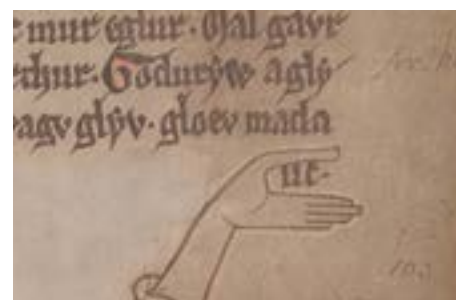 mur eglur · Mal gavr
rthur · Godurẏw aglẏ
agv glẏv · gloev mada
uc ·